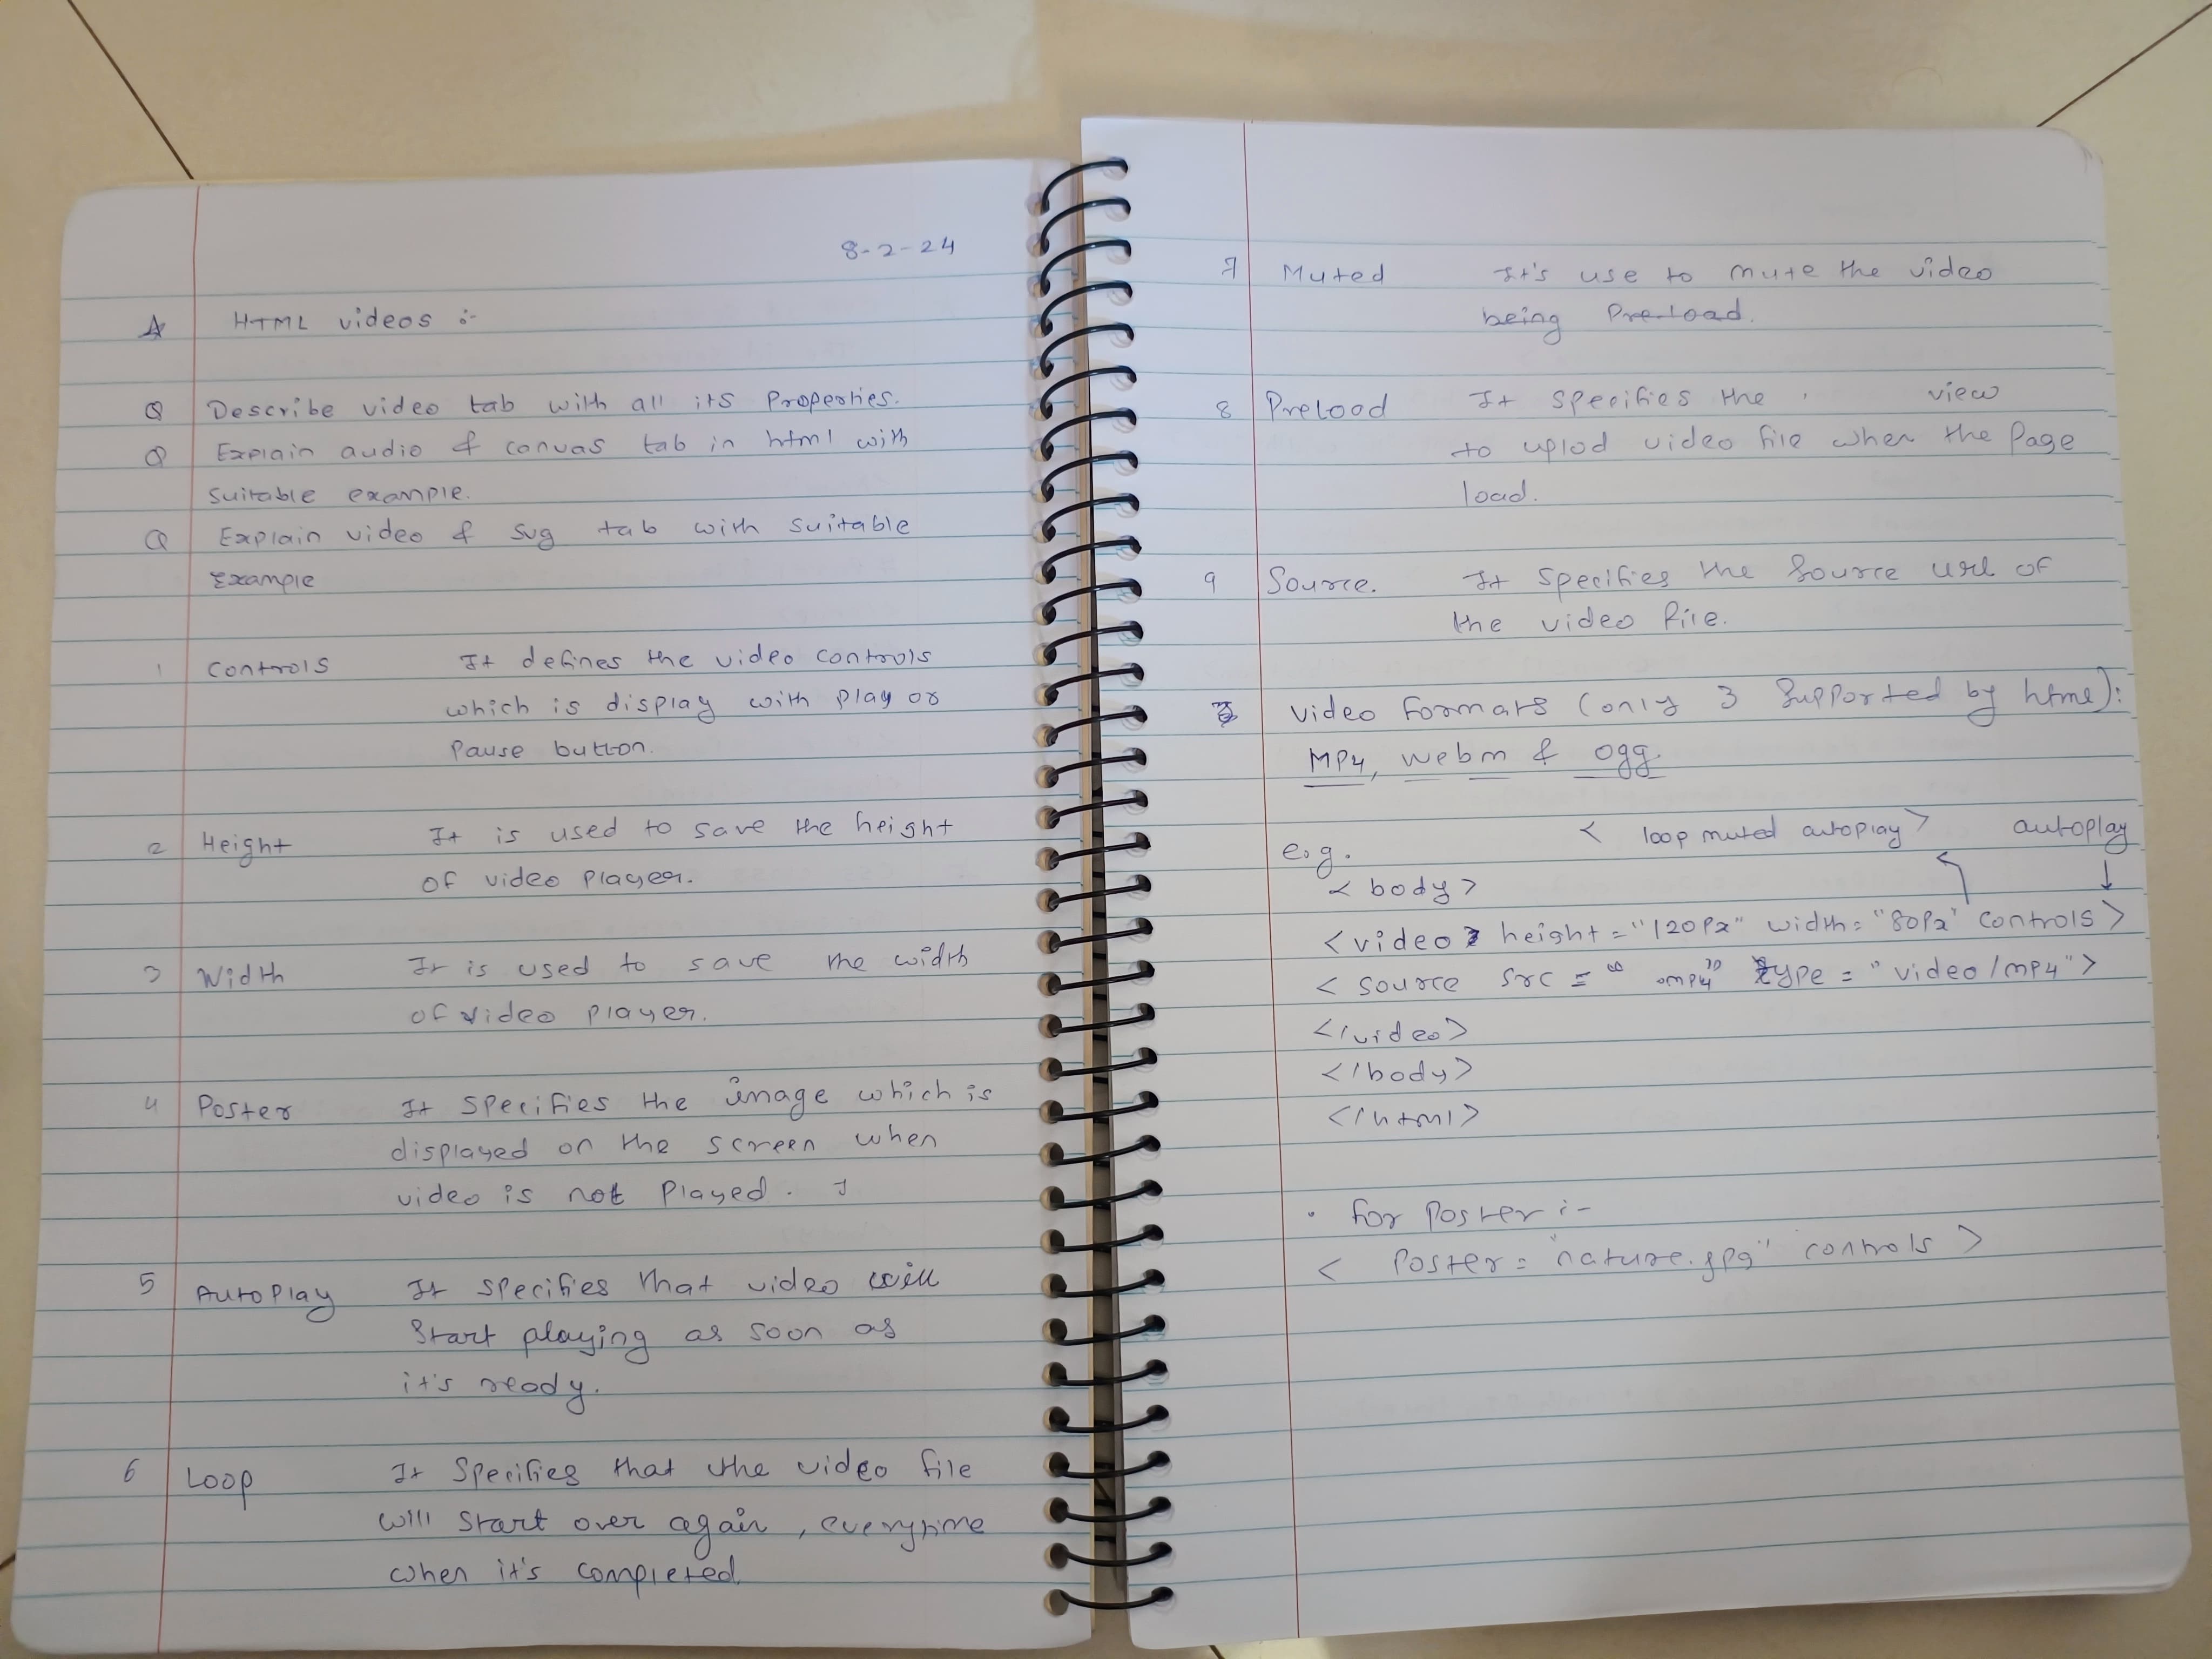 8-2-24
A HTML videos :-
Q Describe video tab with all its Properties.
Q Explain audio & canvas tab in html with
suitable example.
Q Explain video & svg tab with suitable
Example
1 controls It defines the video controls
which is display with play or
Pause button.
2 Height It is used to save the height
of video player.
3 Width It is used to save the width
of video player.
4 Poster It specifies the image which is
displayed on the screen when
video is not Played. I
5 AutoPlay It specifies that video will
Start playing as soon as
it's ready.
6 Loop It Specifies that the video file
will start over again, everytime
when it's completed
7 Muted It's use to mute the video
being Pre-load.
8 Preload It specifies the view
to uplod video file when the Page
load.
9 Source. It specifies the Source url of
the video file.
video formats (only 3 Supported by html):
MP4, webm & ogg.
< loop muted autoplay> autoplay
e.g.
< body>
<video height="120Px" width="80Px" controls>
< source src = " .mp4" type = "video/mp4">
</video>
</body>
</html>
• for poster :-
< Poster= "nature.jpg" controls >